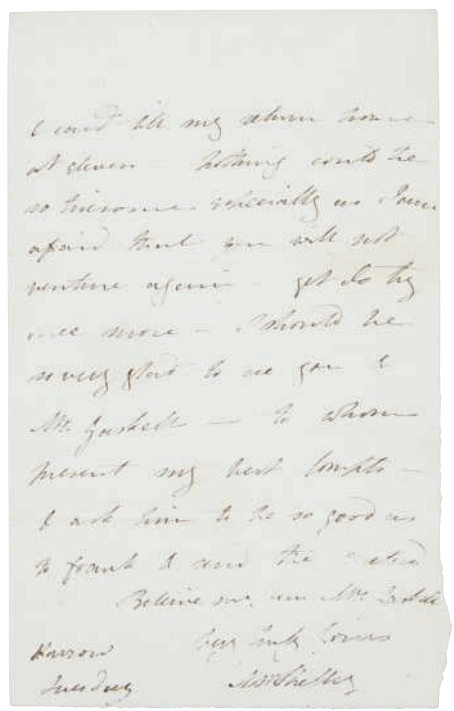 & card till my return home
at eleven – Nothing could be
so tiresome especially as I am
afraid that you will not
venture again – yet do try
once more – I should be
so very glad to see you &
Mr. Gaskell – to whom
present my best Compts –
& ask him to be so good as
to frank & send the
Believe me, dear Mrs. Gaskell
Very truly Yours
Harrow MWShelley
Tuesday